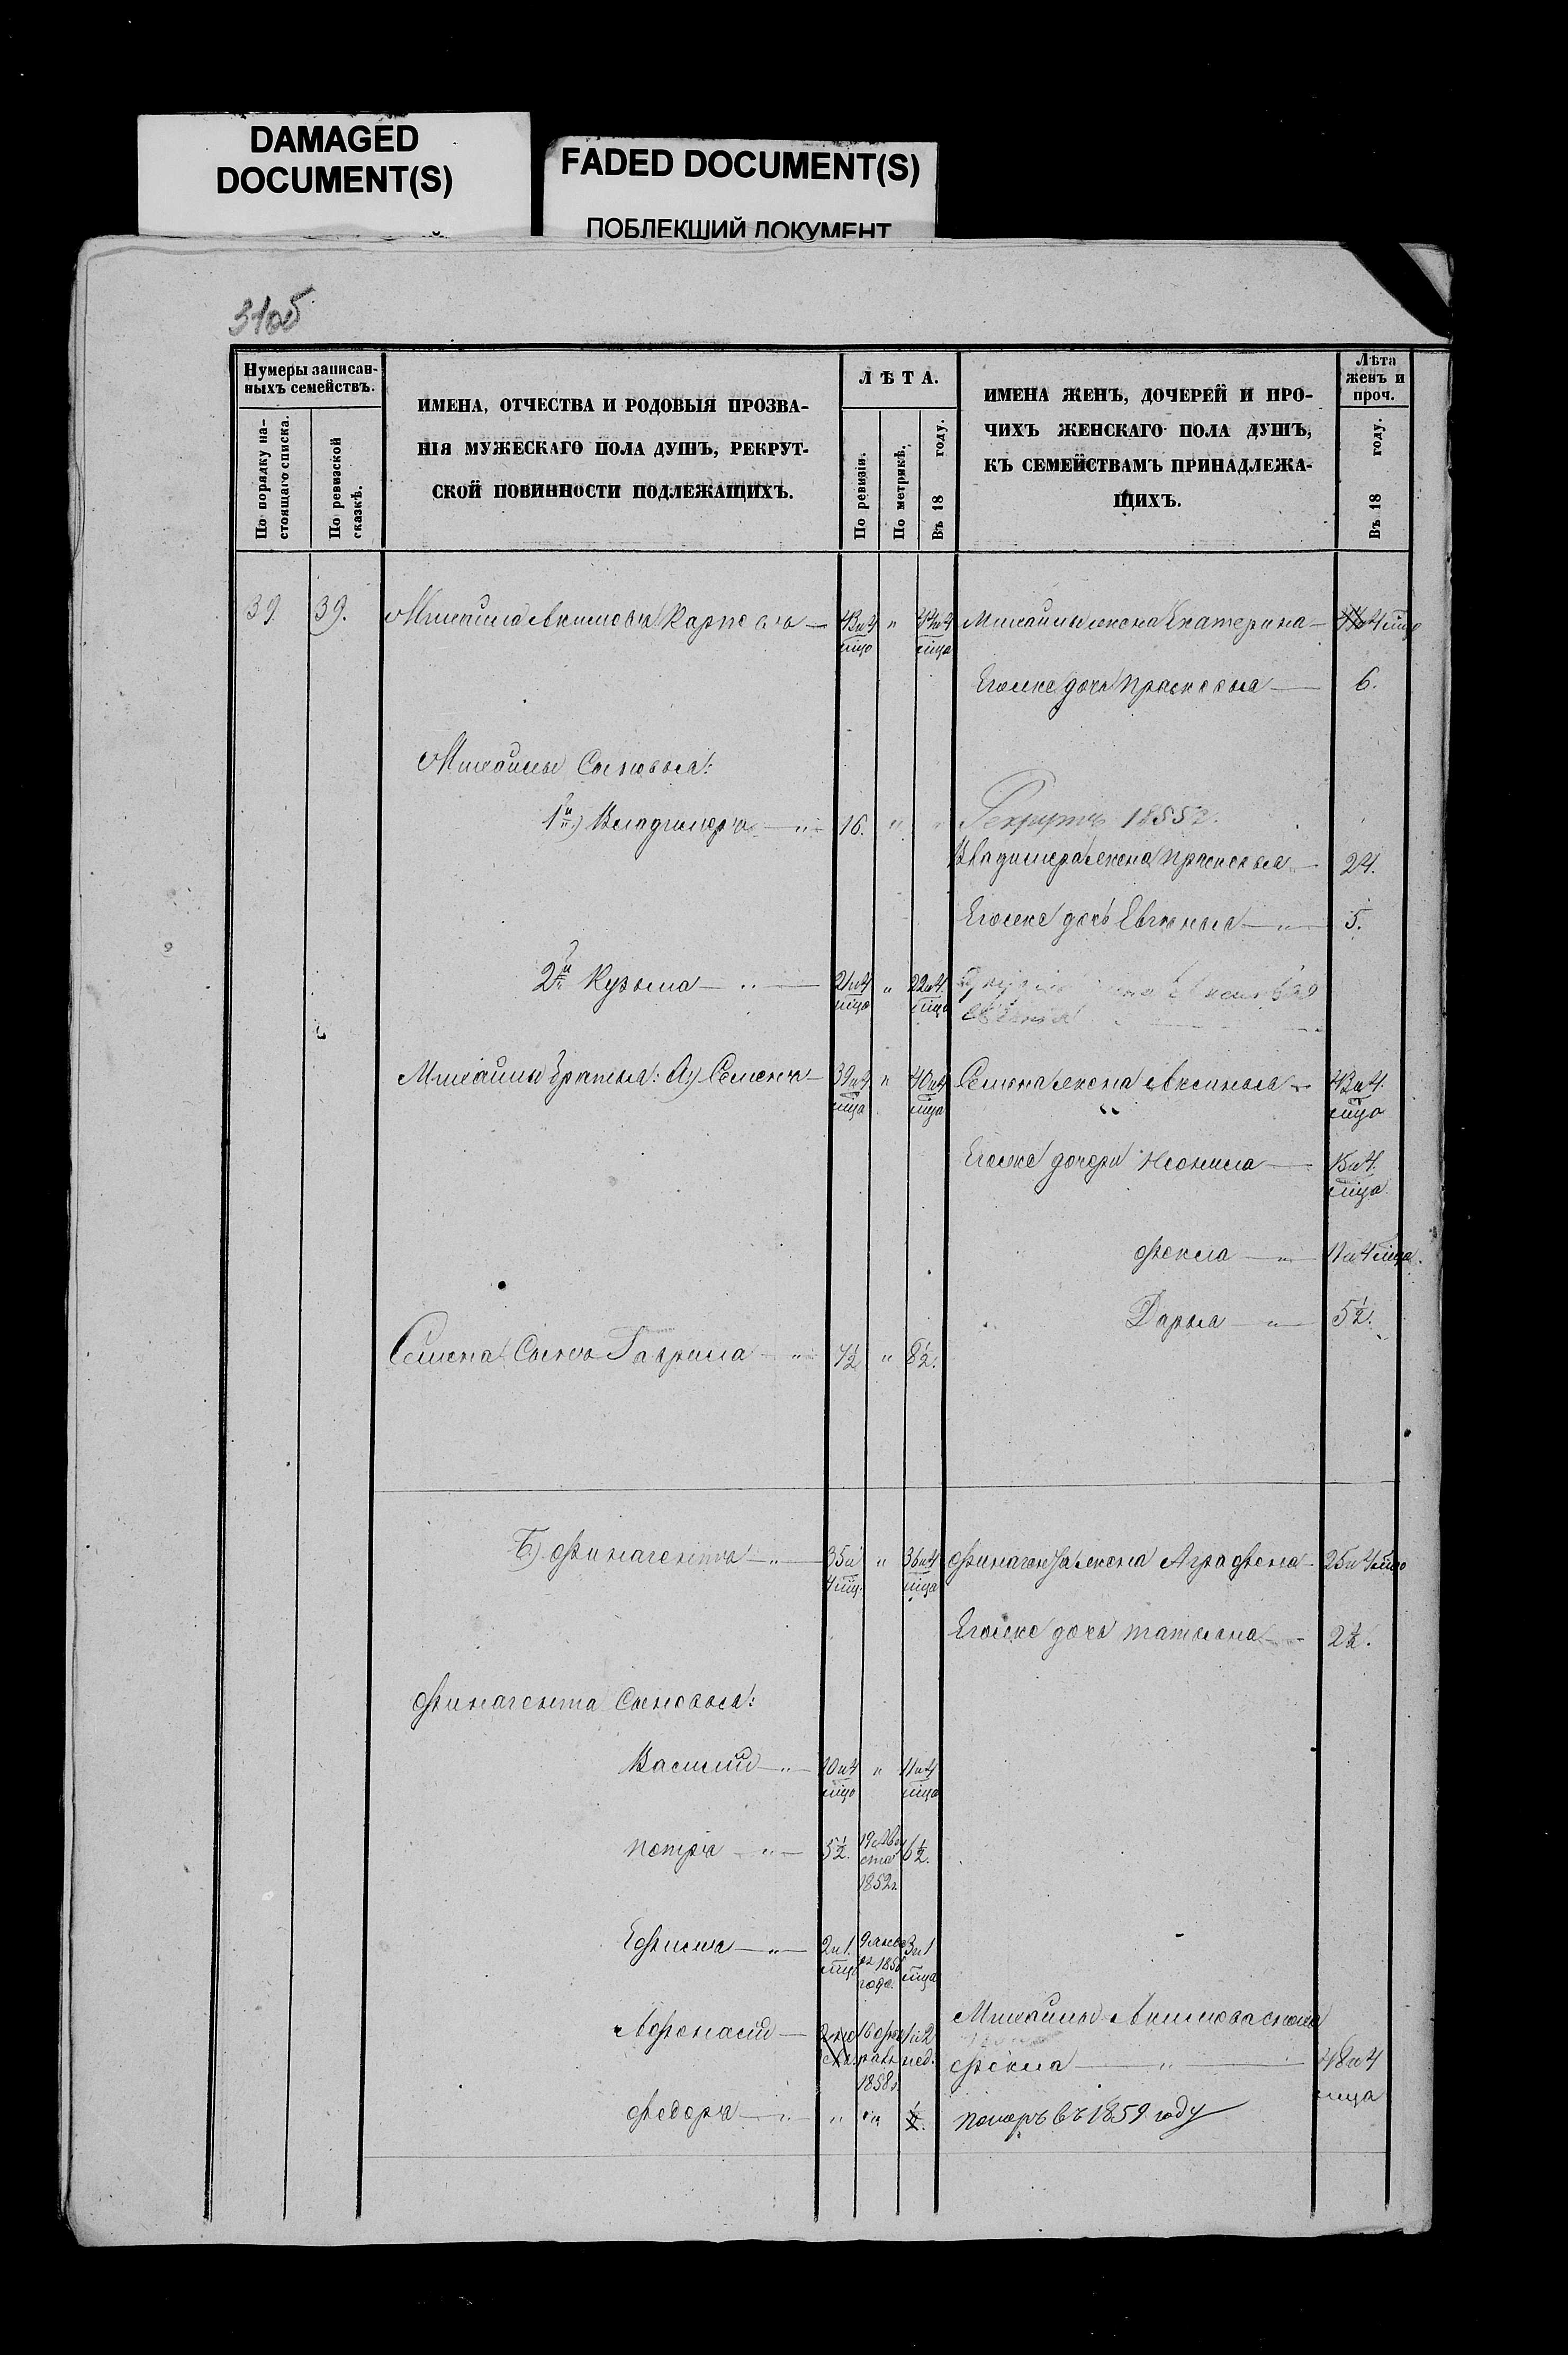 DAMAGED
DOCUMENT(S)
FADED DOCUMENT(S)
ПОБЛЕКШИЙ ДОКУМЕНТ
31об
Нумеры записан-
ныхъ семействъ.
По порядку на-
стоящаго списка.
По ревизской
сказкѣ.
ИМЕНА, ОТЧЕСТВА И РОДОВЫЯ ПРОЗВА-
НІЯ МУЖЕСКАГО ПОЛА ДУШЪ, РЕКРУТ-
СКОЙ ПОВИННОСТИ ПОДЛЕЖАЩИХЪ.
ЛѢТА.
По ревизіи.
По метрикѣ.
Въ 18 году.
ИМЕНА ЖЕНЪ, ДОЧЕРЕЙ И ПРО-
ЧИХЪ ЖЕНСКАГО ПОЛА ДУШЪ,
КЪ СЕМЕЙСТВАМЪ ПРИНАДЛЕЖА-
ЩИХЪ.
Лѣта
женъ и
проч.
Въ 18 году.
39 39. Михаила Акимовъ Карповъ 43 и 4 мца " 44 и 4 мца Михайлы жена Екатерина и 4 мца
Егоже дочь Прасковья 6.
Михайлы Сыновья:
1й) Владимеръ " 16. " " Рекрутъ 1855 г.
Владимера жена Прасковья 24.
Егоже дочь Евгенья " 5.
2й Кузьма " 21 и 4 мца " 22 и 4 мца
Михайлы братья: А.) Семенъ 39 и 4 мца " 40 и 4 мца Семена жена Аксинья 43 и 4 мца
Егоже дочери Неонила 15 и 4 мца
Фекла " 11 и 4 мца.
Дарья " 5½.
Семена Сынъ Гаврила " 7½ " 8½.
Б.) Финагентъ " 35 и 4 мц. " 36 и 4 мца Финагента жена Аграфена 25 и 4 мца
Егоже дочь Татьяна 2½.
Финагента Сыновья:
Василий " 10 и 4 мца " 11 и 4 мца
Петръ " 5½. 19 Авгу
ста
1852 г. 6½.
Ефимъ " 2 и 1 мца 9 янва
ря 1856
года. 3 и 1 мца
Афонасий 16 фев
раля
1858 г. 1 и 2 нед.
Михайлы Акимова
Фекла " 48 и 4 мца
Федоръ " " " ½. померъ въ 1859 году